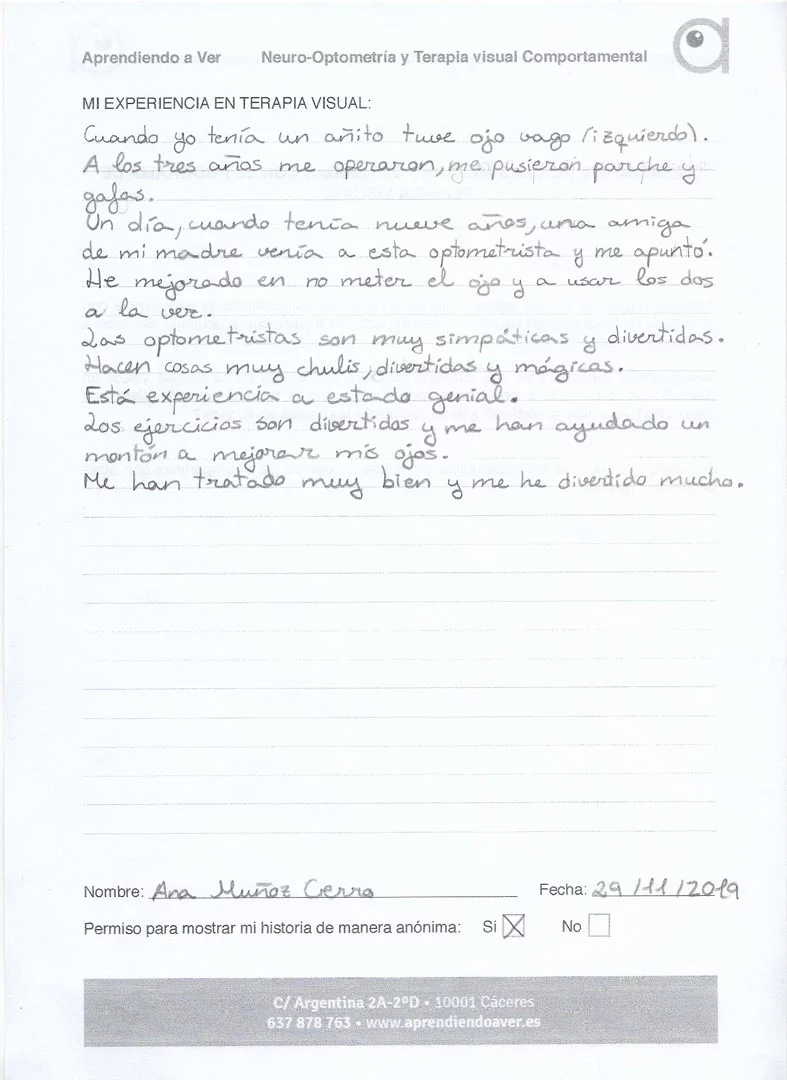 Aprendiendo a Ver Neuro-Optometría y Terapia visual Comportamental
MI EXPERIENCIA EN TERAPIA VISUAL:
Cuando yo tenía un añito tuve ojo vago (izquierdo).
A los tres años me operaron, me pusieron parche y
gafas.
Un día, cuando tenía nueve años, una amiga
de mi madre venía a esta optometrista y me apuntó.
He mejorado en no meter el ojo y a usar los dos
a la vez.
Las optometristas son muy simpáticas y divertidas.
Hacen cosas muy chulis, divertidas y mágicas.
Está experiencia a estado genial.
Los ejercicios son divertidos y me han ayudado un
montón a mejorar mis ojos.
Me han tratado muy bien y me he divertido mucho.
Nombre: Ana Muñoz Cerro Fecha: 29/11/2019
Permiso para mostrar mi historia de manera anónima: Si No
C/ Argentina 2A-2ºD • 10001 Cáceres
637 878 763 • www.aprendiendoaver.es